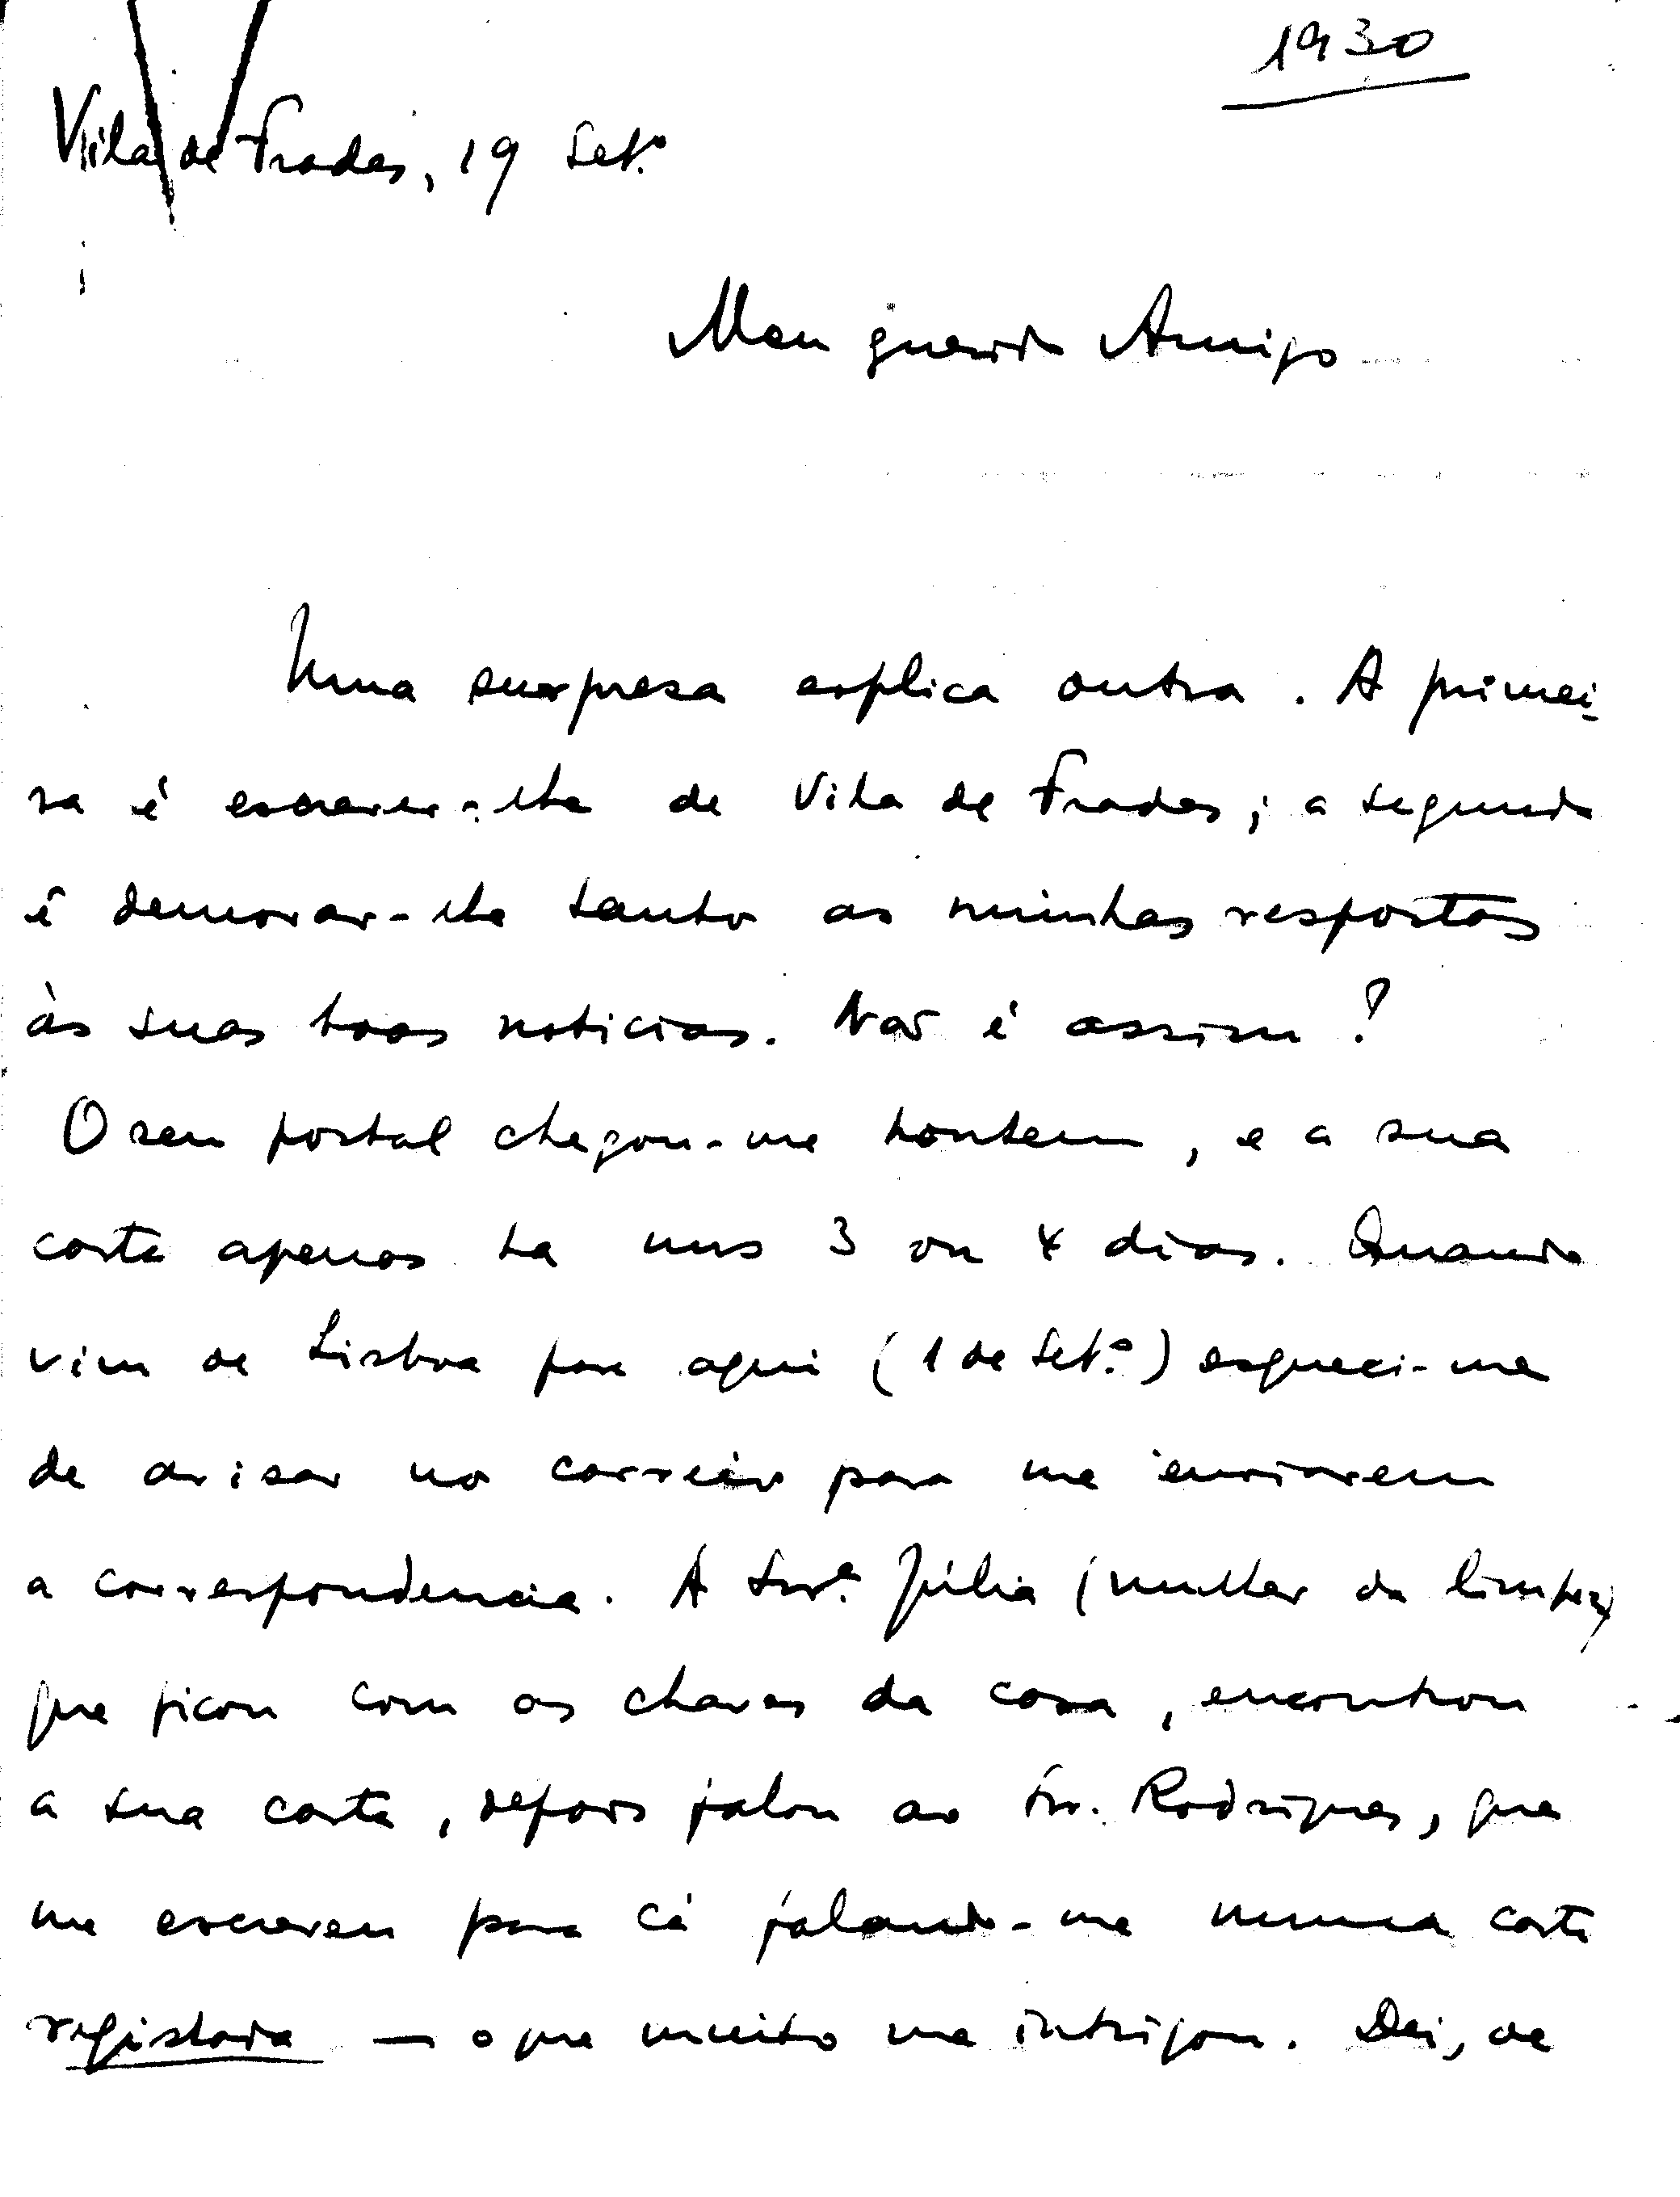 1930
Vila de Frades, 19 Set.º
Meu querido Amigo
Uma surpresa explica outra. A primei-
ra é escrever-lhe de Vila de Frades; a segunda
é demorar-lhe tanto as minhas respostas
às suas boas noticias. Não é assim?
O seu postal chegou-me hontem, e a sua
carta apenas ha uns 3 ou 4 dias. Quando
vim de Lisboa para aqui (1 de Set.º) esqueci-me
de avisar no correio para me enviarem
a correspondencia. A Snr.ª Júlia (mulher da limpeza)
que ficou com as chaves da casa, encontrou
a sua carta, depois falou ao Snr. Rodrigues, que
me escreveu para cá falando-me numa carta
registada — o que muito me intrigou. Dei, de